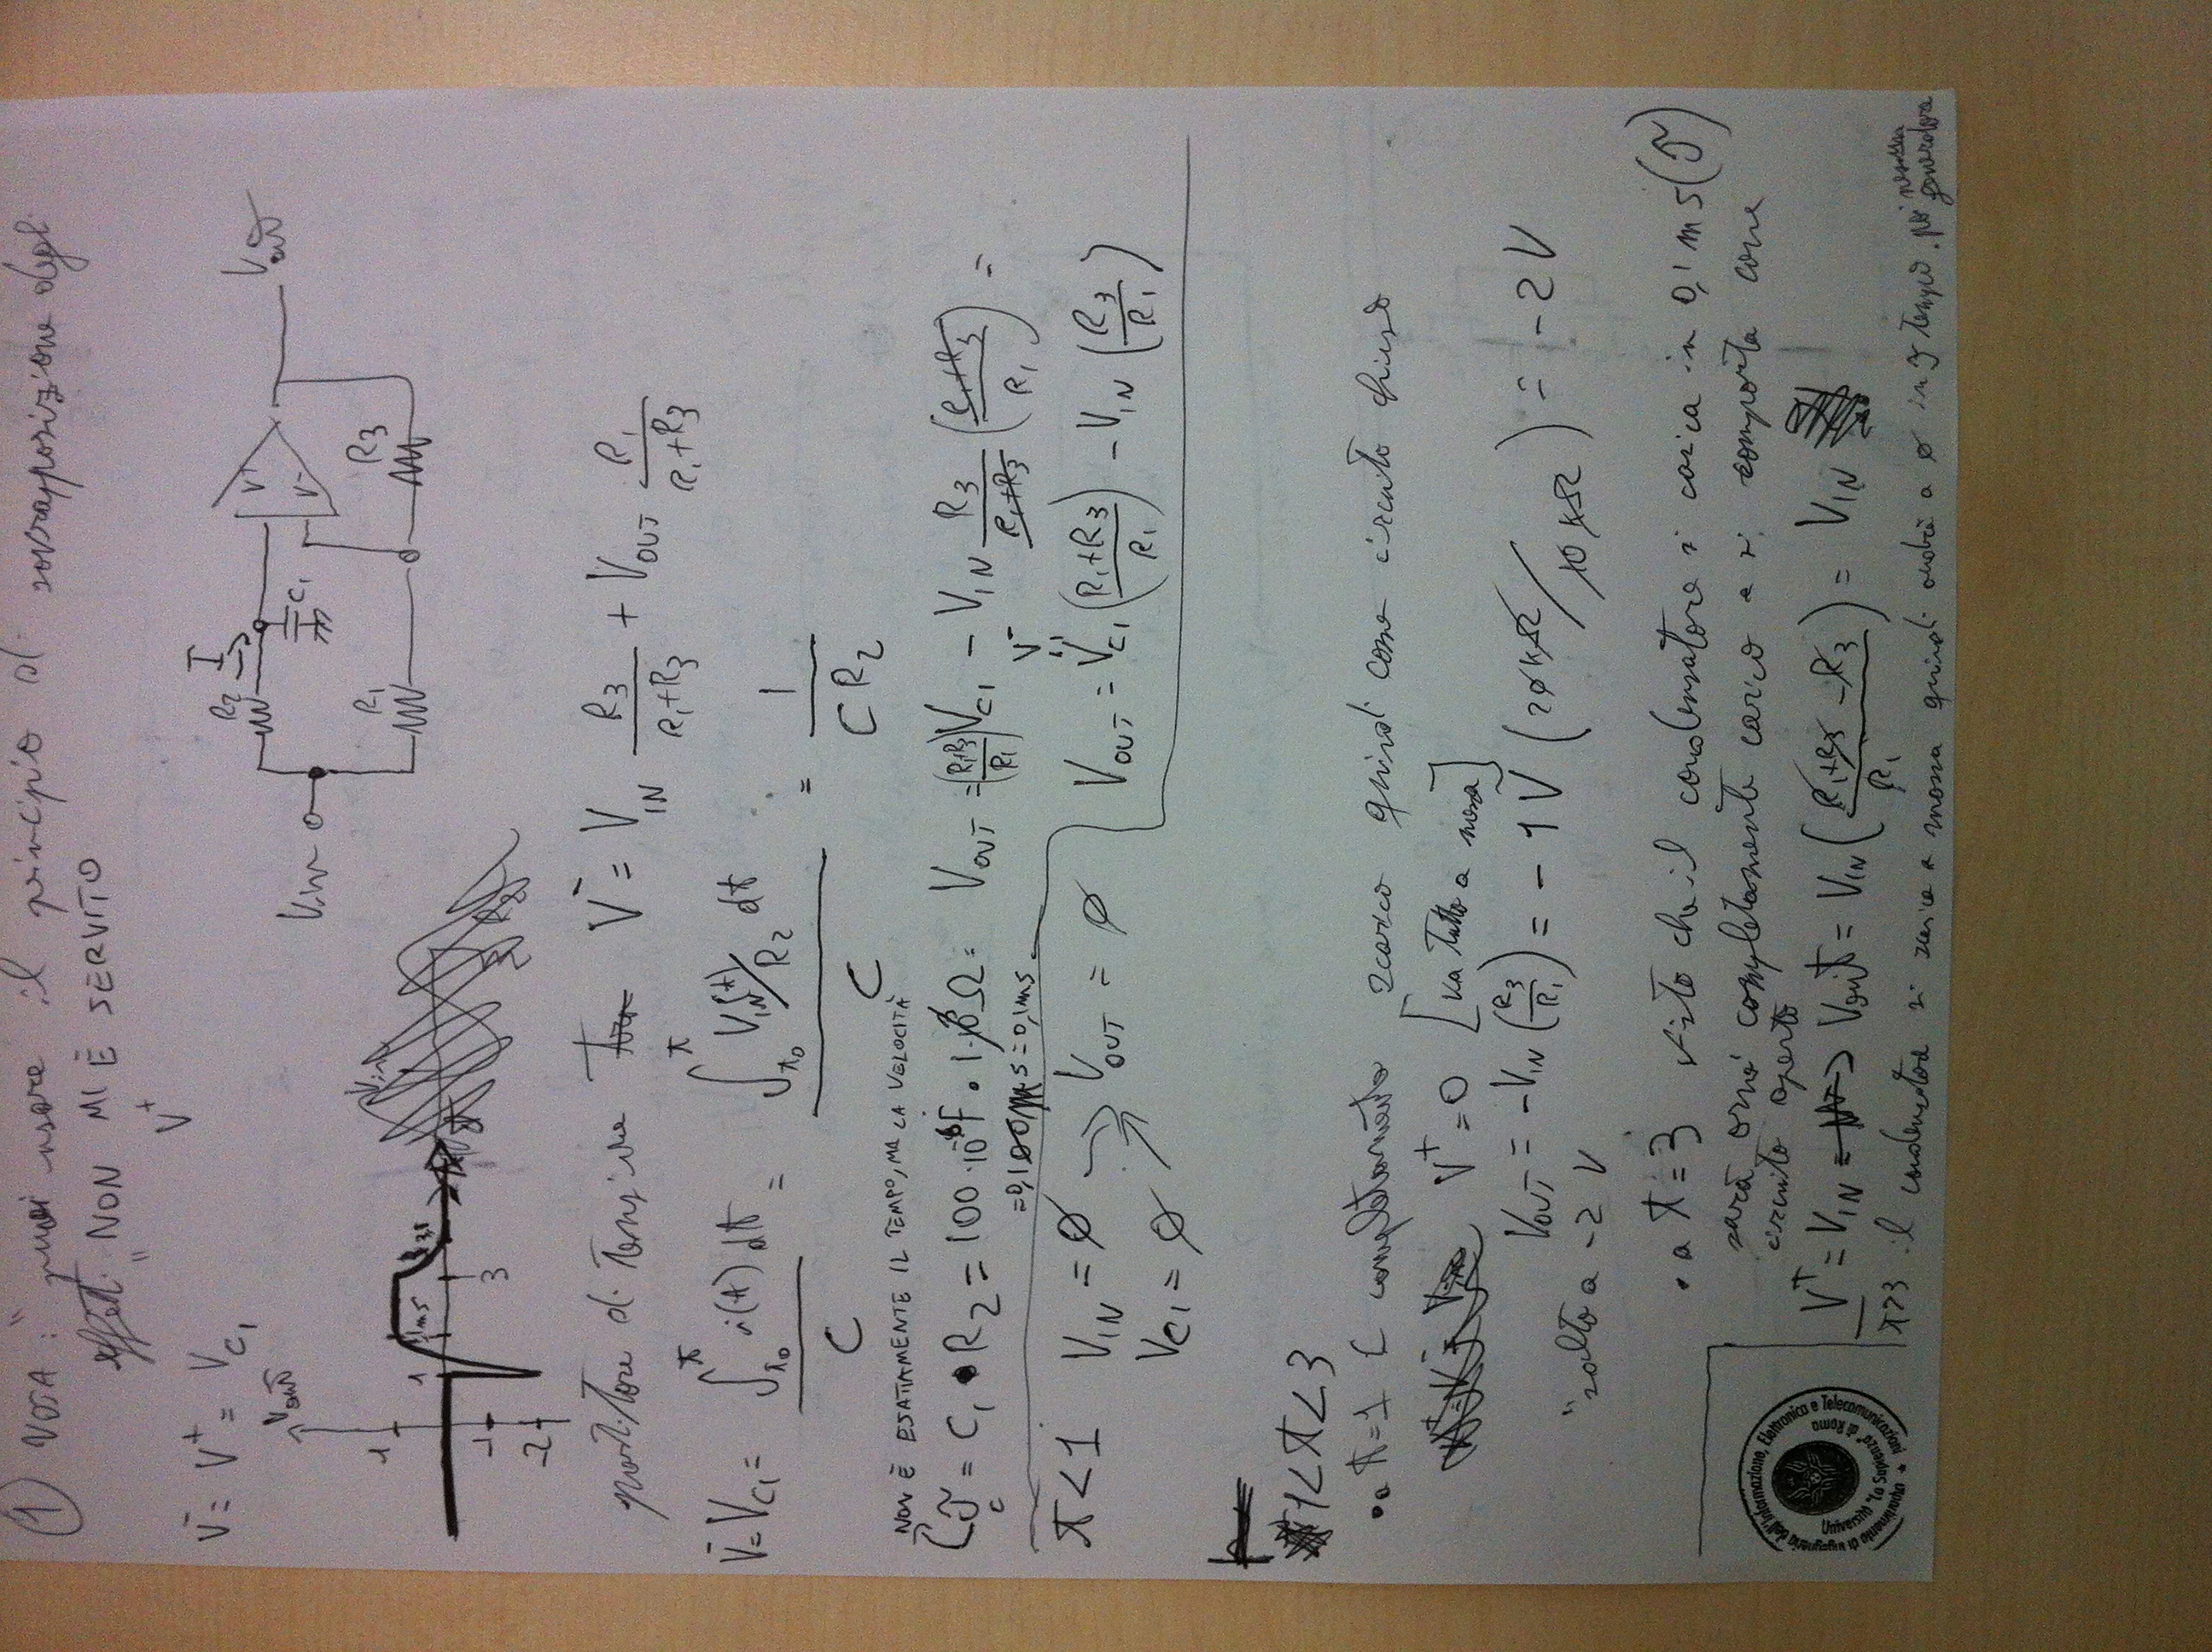 ① NOTA: "puoi usare il principio di sovrapposizione degli
effetti" NON MI È SERVITO
V⁺
V⁻ = V⁺ = V_C₁
R₂ I V⁺ V_out
V_out
V_in C₁ V⁻
R₁ R₃
1
1 ms
-1 3
-2
partitore di tensione V⁻ = V_IN R₃/(R₁+R₃) + V_OUT R₁/(R₁+R₃)
V⁻ = V_C₁ = ∫_t₀^t i(t) dt / C = ∫_t₀^t V_IN(t)/R₂ dt / C = 1/(C R₂)
NON È ESATTAMENTE IL TEMPO, MA LA VELOCITÀ
τ_c = C₁ • R₂ = 100 · 10⁻⁶F • 1·10³Ω = V_OUT = ((R₁+R₃)/R₁) V_C₁ − V_IN R₃/(R₁+R₃) ((R₁+R₃)/R₁) =
= 0,100 ms = 0,1 ms
t < 1 V_IN = ∅ → V_OUT = ∅ V_OUT = V_C₁ ((R₁+R₃)/R₁) − V_IN (R₃/R₁)
V⁻
V_C₁ = ∅
1 < t < 3
• a t=1 C completamente scarico quindi come circuito chiuso
V⁺ = 0 [va tutto a massa]
V_OUT = −V_IN (R₃/R₁) = − 1 V (20 kΩ / 10 kΩ) = −2 V
"salto a −2 V
• a t = 3 visto che il condensatore si carica in 0,1 ms (τ)
sarà ormai completamente carico e si comporta come
circuito aperto
V⁺ = V_IN → V_out = V_IN ((R₁+R₃ − R₃)/R₁) = V_IN
t>3 il condensatore si scarica a massa quindi andrà a ∅ in τ tempo. poi nessun
generatore
Dipartimento di Ingegneria dell'Informazione, Elettronica e Telecomunicazioni
Università "La Sapienza" di Roma